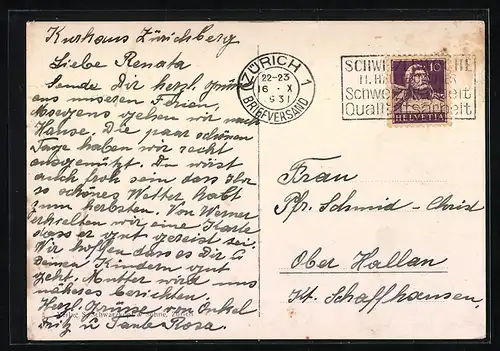 Kurhaus Zürichberg
Liebe Renata
Sende Dir herzl. Grüsse
aus unseren Ferien,
Morgens gehen wir nach
Hause. Die paar schönen
Tage haben wir recht
ausgenützt. Du wirst
auch froh sein dass Ihr
so schönes Wetter habt
zum herbsten. Von Werner
erhielten wir eine Karte
dass er gut gereist sei.
Wir hoffen dass es Dir &
Deinen Kindern gut
geht. Mutter wird uns
näheres berichten.
Herzl. Grüsse von Onkel
Fritz u Tante Rosa.
ZÜRICH 1
22-23
16 X
BRIEFVERSAND
SCHW
Schwe
Qualitätsarbeit
10
HELVETIA
Frau
Pfr. Schmid-Christ
Ober Hallau
Kt. Schaffhausen,